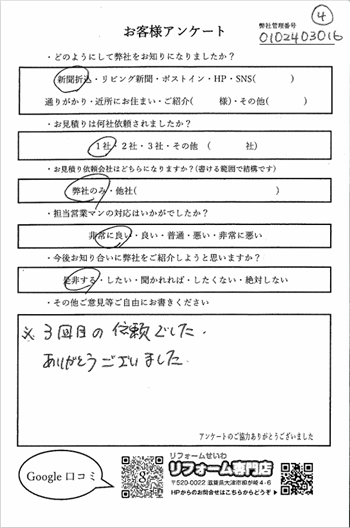 ④
お客様アンケート
弊社管理番号
0102403016
・どのようにして弊社をお知りになりましたか？
新聞折込・リビング新聞・ポストイン・HP・SNS(　　　)
通りがかり・近所にお住まい・ご紹介(　　　様)・その他(　　　)
・お見積りは何社依頼されましたか？
1社・2社・3社・その他　(　　　社)
・お見積り依頼会社はどちらになりますか？(書ける範囲で結構です)
弊社のみ・他社(　　　)
・担当営業マンの対応はいかがでしたか？
非常に良い・良い・普通・悪い・非常に悪い
・今後お知り合いに弊社をご紹介しようと思いますか？
是非する・したい・聞かれれば・したくない・絶対しない
・その他ご意見等ご自由にお書きください
※ 3回目の信頼でした.
ありがとうございました.
アンケートのご協力ありがとうございました
Google 口コミ
リフォームせいわ
リフォーム専門店
〒520-0022 滋賀県大津市柳が崎4-6
HPからのお問合せはこちらからどうぞ